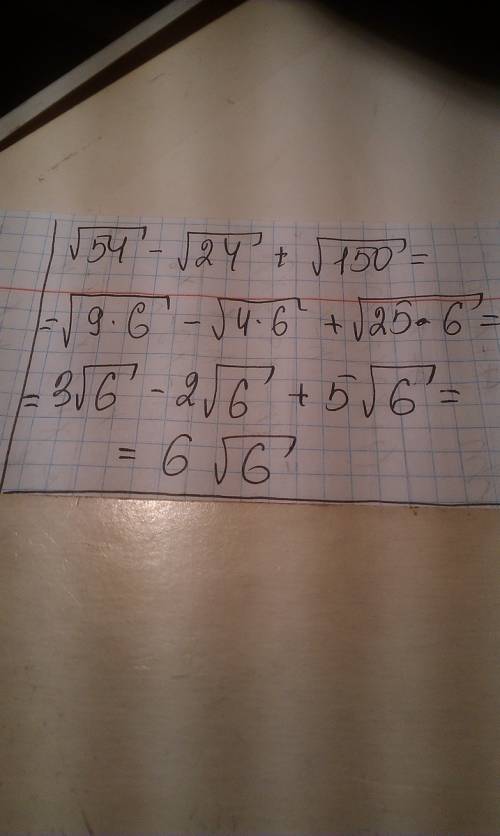 √54 - √24 + √150 =
= √9·6 - √4·6 + √25·6 =
= 3√6 - 2√6 + 5√6 =
= 6 √6